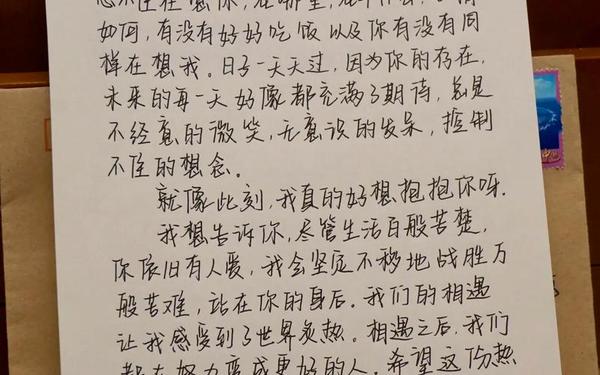 忍不住在想你,在哪里,在
如何,有没有好好吃饭以及你有没有同
样在想我。日子一天天过,因为你的存在,
未来的每一天好像都充满了期待,总是
不经意的微笑,无意识的发呆,控制
不住的想念。
就像此刻,我真的好想抱抱你呀.
我想告诉你,尽管生活百般苦楚,
你依旧有人爱,我会坚定不移地战胜万
般苦难,站在你的身后。我们的相遇
让我感受到了世界炙热。相遇之后,我们
都在努力变成更好的人。希望这份热